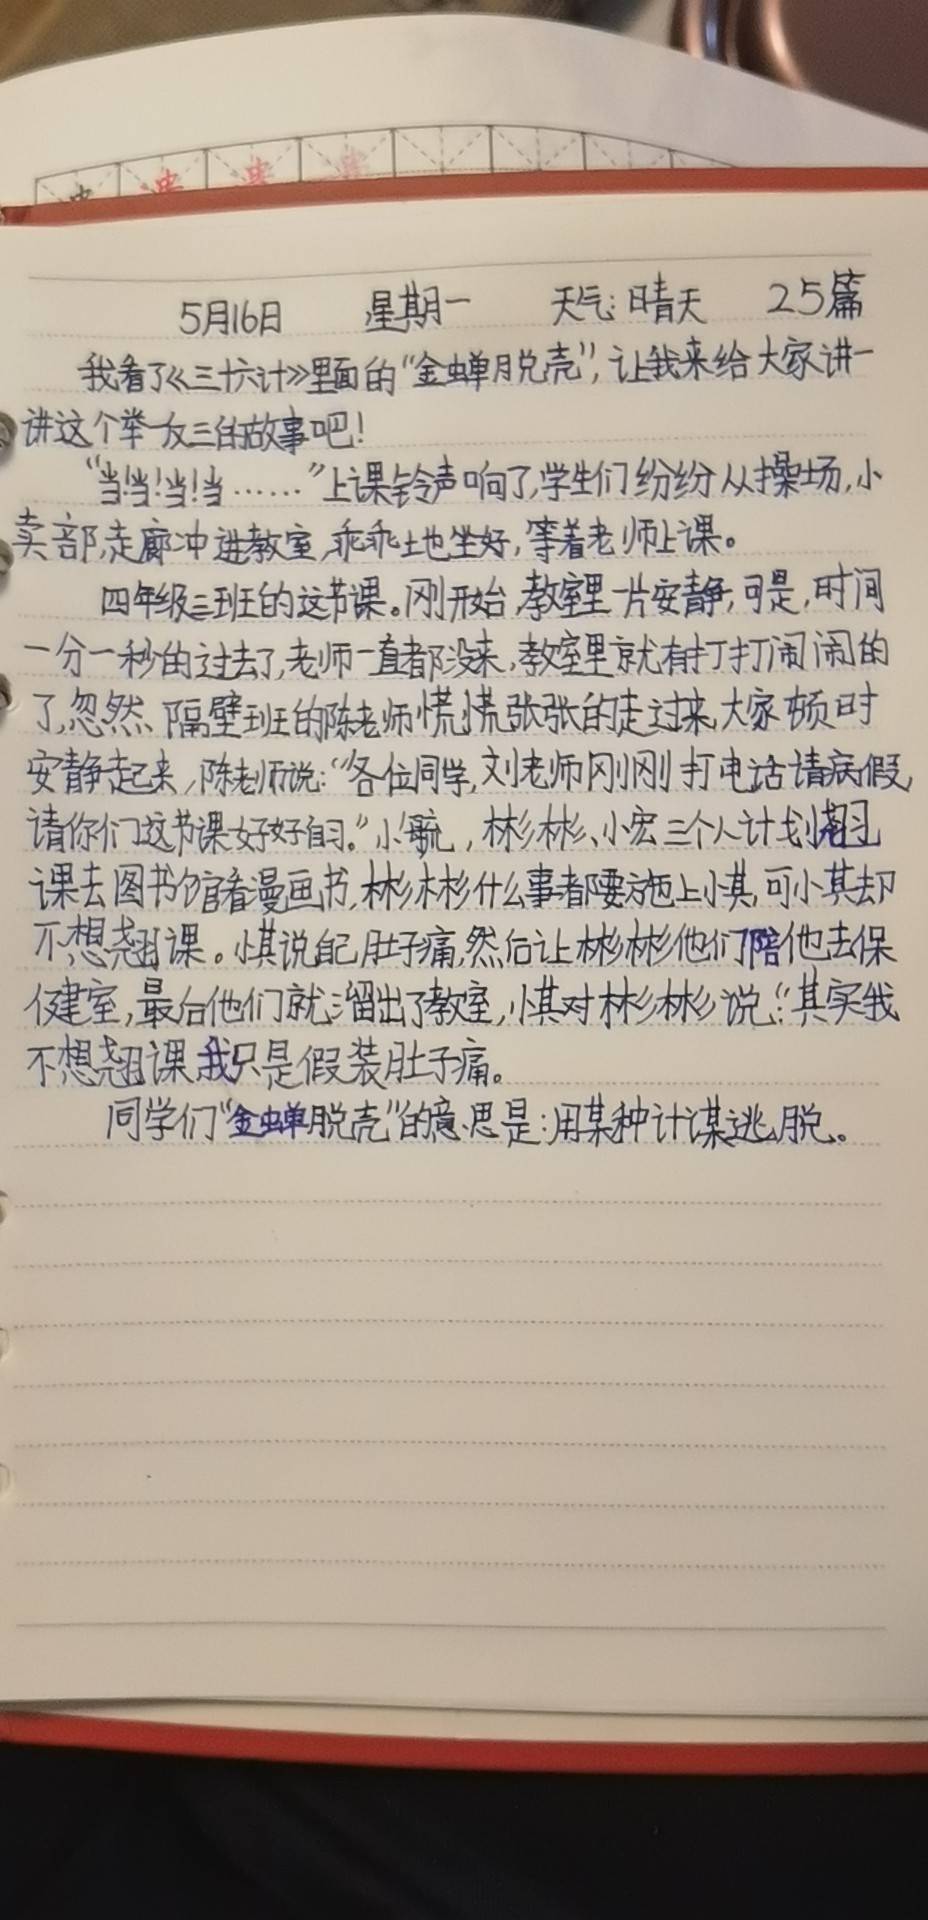 5月16日 星期一 天气:晴天 25篇
我看了《三十六计》里面的“金蝉脱壳”,让我来给大家讲一
讲这个举一反三的故事吧!
“当!当!当!当……”上课铃声响了,学生们纷纷从操场,小
卖部,走廊冲进教室,乖乖土地坐好,等着老师上课。
四年级三班的这节课。刚开始,教室里一片安静,可是,时间
一分一秒的过去了,老师一直都没来,教室里就有打打闹闹的
了,忽然、隔壁班的陈老师慌慌张张的走过来,大家顿时
安静起来,陈老师说:“各位同学,刘老师刚刚打电话请病假,
请你们这节课好好自习。”小毓,彬彬、小宏三个人计划翘
课去图书馆看漫画书,彬彬什么事都要拖上小其,可小其却
不想翘课。小其说自己肚子痛,然后让彬彬他们陪他去保
健室,最后他们就溜出了教室,小其对彬彬说:“其实我
不想翘课,我只是假装肚子痛。
同学们“金蝉脱壳”的意思是:用某种计谋逃脱。